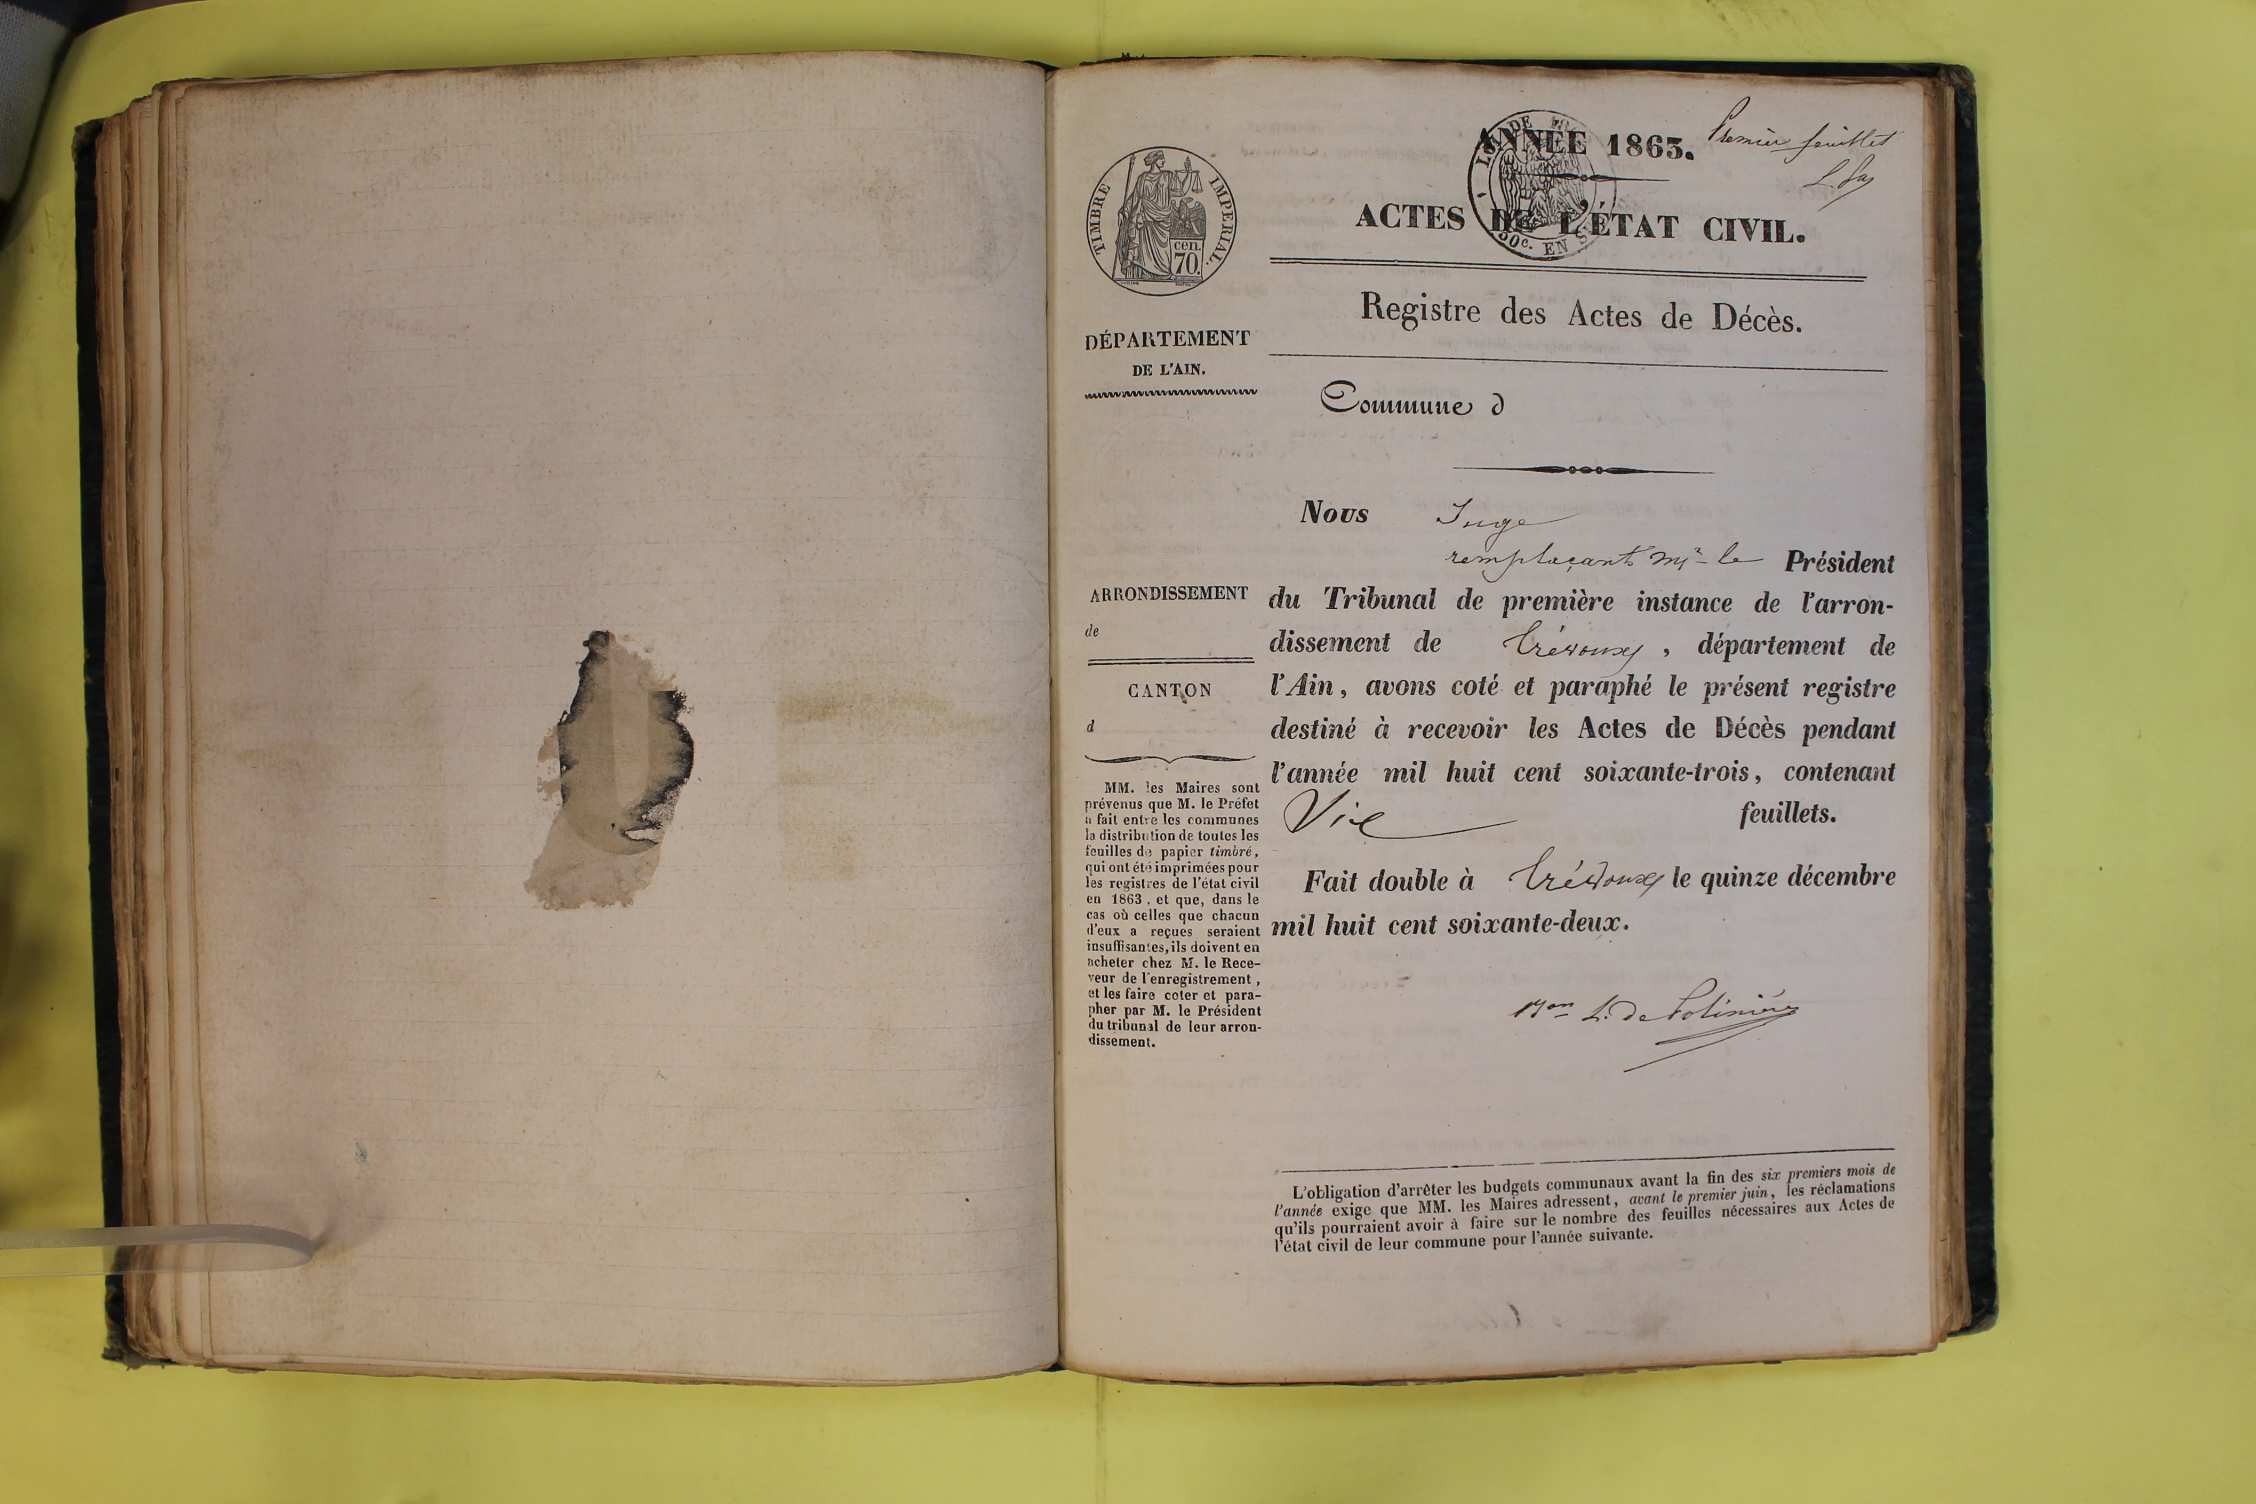 Premier feuillet
ANNÉE 1863.
ACTES DE L'ÉTAT CIVIL.
Registre des Actes de Décès.
Commune d
TIMBRE IMPERIAL.
cen.
70.
DÉPARTEMENT
DE L'AIN.
ARRONDISSEMENT
de
CANTON
d
MM. les Maires sont
prévenus que M. le Préfet
a fait entre les communes
la distribution de toutes les
feuilles de papier timbré,
qui ont été imprimées pour
les registres de l'état civil
en 1863, et que, dans le
cas où celles que chacun
d'eux a reçues seraient
insuffisantes, ils doivent en
acheter chez M. le Rece-
veur de l'enregistrement,
et les faire coter et para-
pher par M. le Président
du tribunal de leur arron-
dissement.
Nous Juge
remplaçant Mr le Président
du Tribunal de première instance de l'arron-
dissement de Trévoux, département de
l'Ain, avons coté et paraphé le présent registre
destiné à recevoir les Actes de Décès pendant
l'année mil huit cent soixante-trois, contenant
feuillets.
Fait double à Trévoux le quinze décembre
mil huit cent soixante-deux.
Bon L. de Polinière
L'obligation d'arrêter les budgets communaux avant la fin des six premiers mois de
l'année exige que MM. les Maires adressent, avant le premier juin, les réclamations
qu'ils pourraient avoir à faire sur le nombre des feuilles nécessaires aux Actes de
l'état civil de leur commune pour l'année suivante.